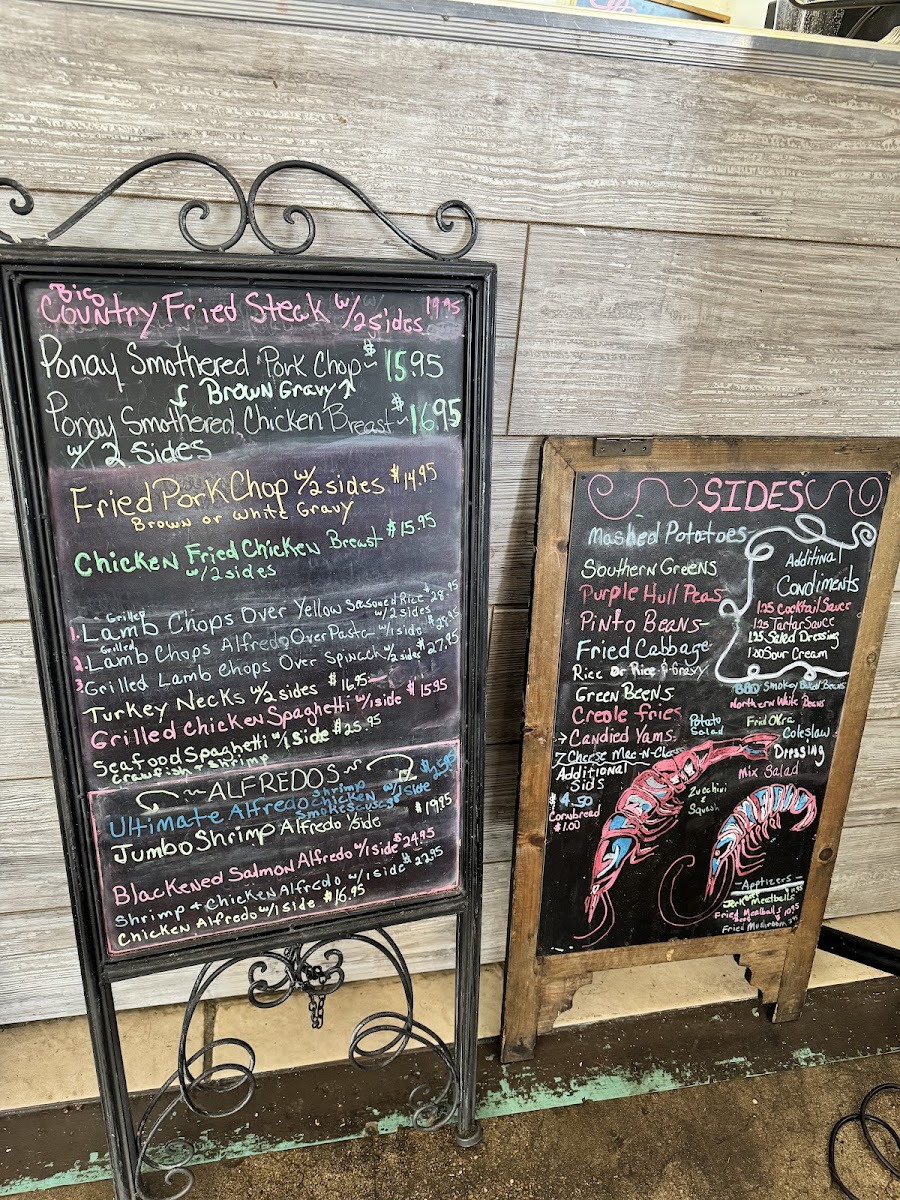 Big
Country Fried Steak w/2sides 19.95
Ponay Smothered Pork Chop~ $15.95
Brown Gravy
Ponay Smothered Chicken Breast~ $16.95
w/2 Sides
Fried Pork Chop w/2sides $14.95
Brown or White Gravy
Chicken Fried Chicken Breast $15.95
w/2sides
Grilled
1. Lamb Chops Over Yellow Seasoned Rice $28.95
w/2 sides
Grilled
2. Lamb Chops Alfredo Over Pasta w/1side $29.95
3. Grilled Lamb Chops Over Spinach w/2 sides $27.95
Turkey Necks w/2sides $16.95
Grilled Chicken Spaghetti w/1side $15.95
Seafood Spaghetti w/1Side $25.95
Crawfish + Shrimp
~ALFREDOS~
Ultimate Alfredo Shrimp Chicken w/1Side
Jumbo Shrimp Alfredo 1/side $19.95
Blackened Salmon Alfredo w/1side $24.95
Shrimp + Chicken Alfredo w/1side $22.95
Chicken Alfredo w/1side $16.95
SIDES
Mashed Potatoes
Southern Greens
Purple Hull Peas
Pinto Beans
Fried Cabbage
Rice or Rice & Gravy
Green Beens
Creole fries
→ Candied Yams
7 Cheese Mac-N-Cheese
Additional
Sids
$4.50
Cornbread
$1.00
Additinal
Condiments
1.25 Cocktail Sauce
1.25 Tartar Sauce
1.25 Salad Dressing
1.00 Sour Cream
BBQ Smokey Baked Beans
Northern White Beans
Potato
Salad
Frid Okra
Coleslaw
Dressing
Mix Salad
Zucchini
&
Squash
-Apptizers-
Jerk Meatballs
Fried Meatballs 10.95
Fried Mushroom